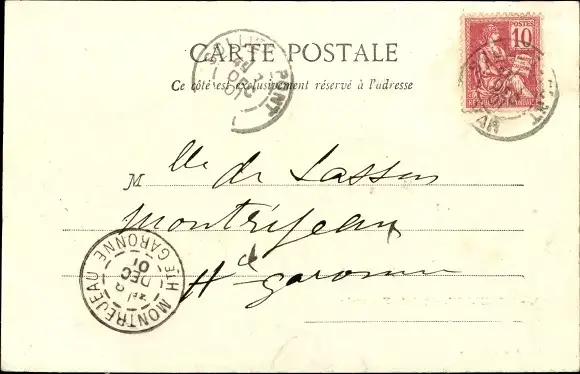 CARTE POSTALE
Ce côté est exclusivement réservé à l'adresse
POSTES
10
RÉPUBLIQUE FRANÇAISE
PONT
DEC
01
Mlle de Lassus
Montréjeau
Hte Garonne
MONTREJEAU
HTE GARONNE
DEC
01